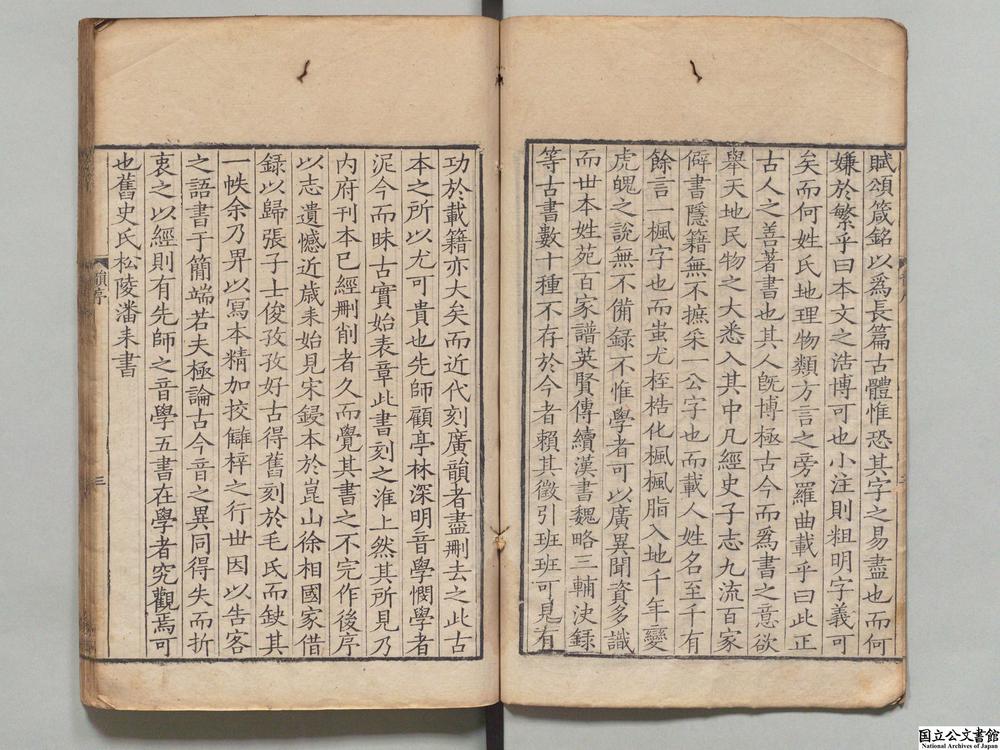 賦頌箴銘以爲長篇古體惟恐其字之易盡也而何
嫌於繁乎曰本文之浩博可也小注則粗明字義可
矣而何姓氏地理物類方言之旁羅曲載乎曰此正
古人之善著書也其人旣博極古今而爲書之意欲
舉天地民物之大悉入其中凡經史子志九流百家
僻書隱籍無不摭采一公字也而載人姓名至千有
餘言一楓字也而蚩尤桎梏化楓楓脂入地千年變
虎魄之說無不備録不惟學者可以廣異聞資多識
而世本姓苑百家譜英賢傳續漢書魏略三輔決録
等古書數十種不存於今者賴其徵引班班可見有
功於載籍亦大矣而近代刻廣韻者盡刪去之此古
本之所以尤可貴也先師顧亭林深明音學憫學者
泥今而昧古實始表章此書刻之淮上然其所見乃
内府刊本已經刪削者久而覺其書之不完作後序
以志遺憾近歲耒始見宋鋟本於崑山徐相國家借
録以歸張子士俊孜孜好古得舊刻於毛氏而缺其
一帙余乃畀以寫本精加挍讎梓之行世因以告客
之語書于簡端若夫極論古今音之異同得失而折
衷之以經則有先師之音學五書在學者究觀焉可
也舊史氏松陵潘耒書
韻序
三
国立公文書館
National Archives of Japan